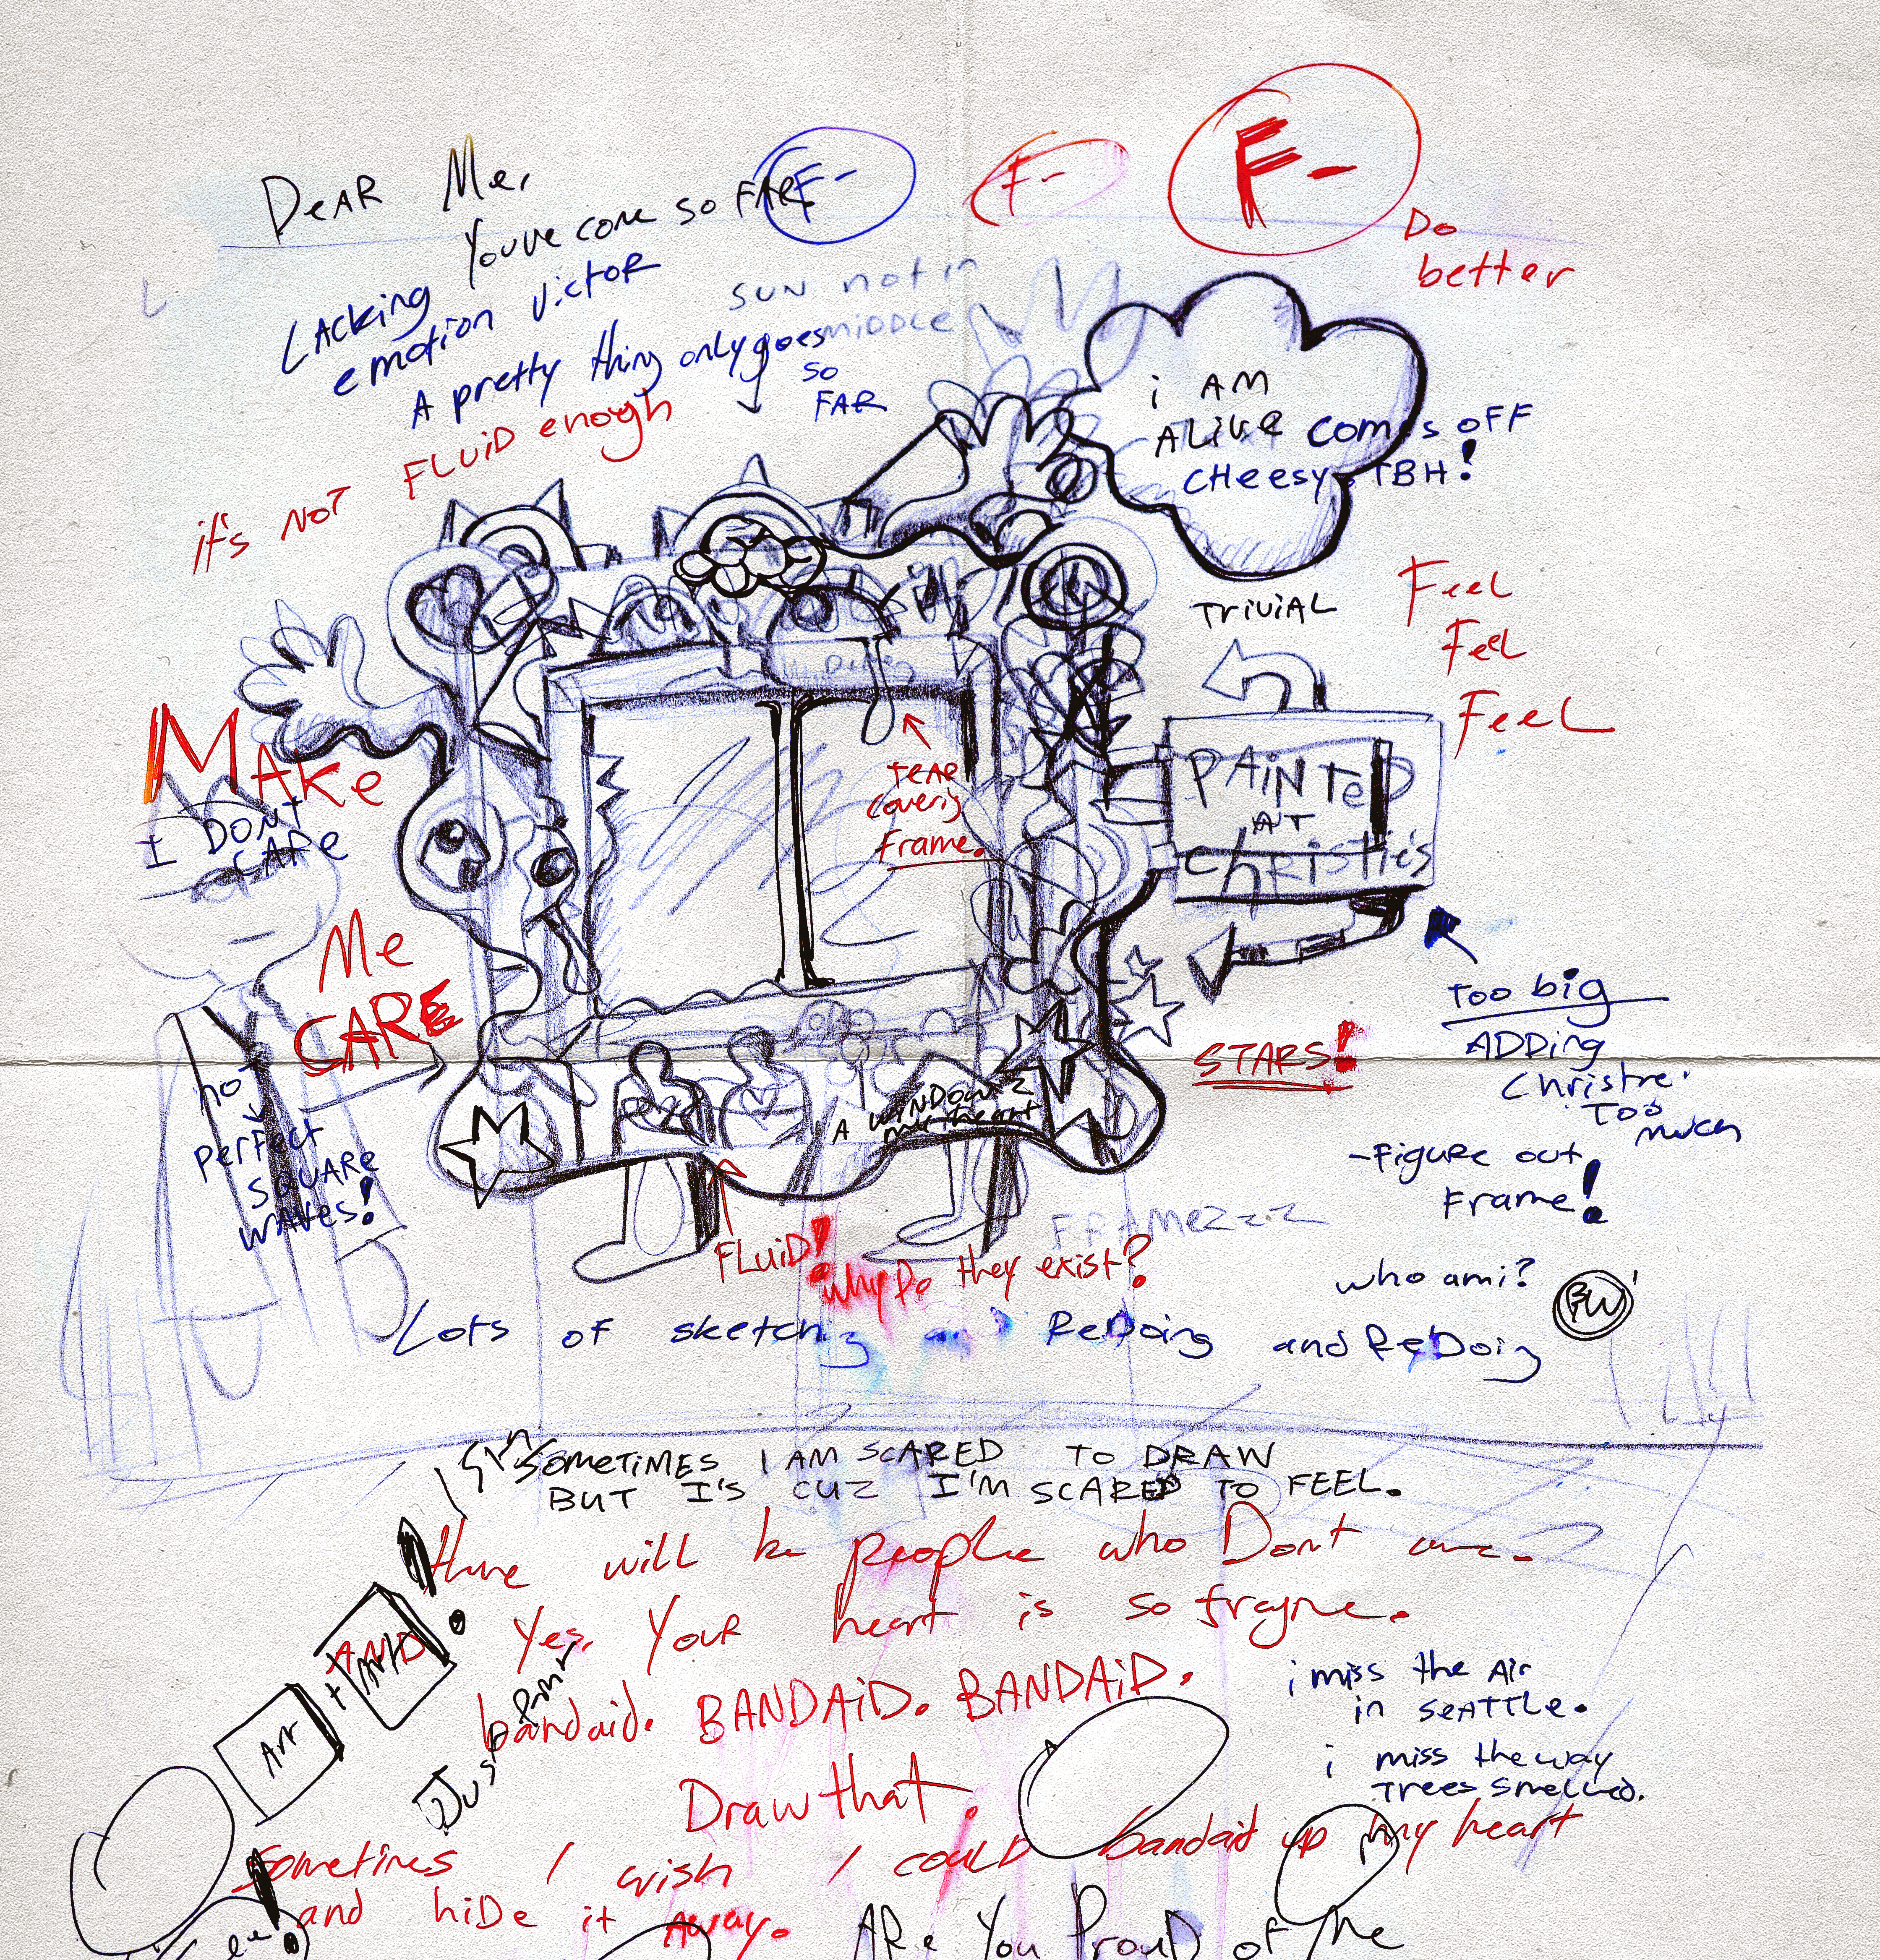 DEAR Me,
YouVe come so FAR.
F-
F-
F-
Do
better
LAcking
emotion Victor
A pretty thing only goes
so
FAR
SUN not in
MiDDLe
it's NoT FLUiD enogh
i AM
ALiVe
comes oFF
CHeesy TBH!
TriViAL
Feel
Feel
FeeL
MAKe
I DONT
CARe
Me
CARE
teAR
Coverig
Frame.
PAiNTeD
AT
christie's
too big
ADDing
Christie.
Too
much
-Figure out
Frame!
STARS!
no
perfect
SQUARe
WAVes!
A WiNDOW 2
my heart
FLuiD!
Why Do they exist?
FRAMeZzz
who am i?
Lots of sketching and ReDoing and ReDoig
SOMETIMES I AM SCARED TO DRAW
BUT I'S CUZ I'M SCARED TO FEEL.
there will be people who Dont care.
Yes, YouR heart is so fragile.
bandaid. BANDAiD. BANDAiD.
Draw that.
ART
+
Art
Just Paint
i miss the Air
in SeATTLe.
i miss the way
Trees smelled.
Sometimes I wish I coulD bandaid up my heart
and hiDe it Away.
ARe You ProuD of the